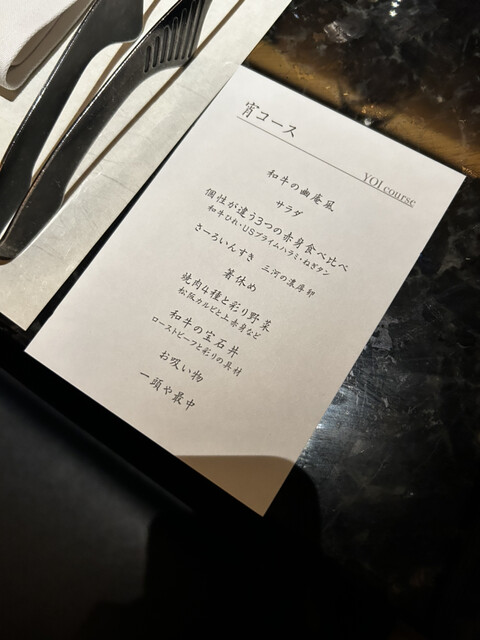 宵コース
YOI course
和牛の幽庵風
サラダ
個性が違う3つの赤身食べ比べ
和牛ひれ・USプライムハラミ・ねぎタン
さーろいんすき 三河の濃厚卵
箸休め
焼肉4種と彩り野菜
松阪カルビと上赤身など
和牛の宝石丼
ローストビーフと彩りの具材
お吸い物
一頭や最中